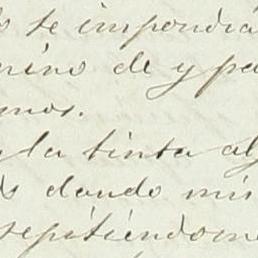 te impondrá
nino de y pa
mos.
la tinta al
dando mis
repitiéndome